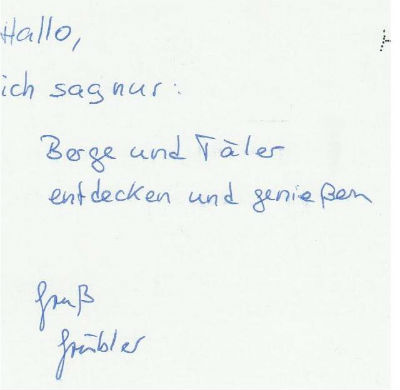 Hallo,
ich sag nur:
Berge und Täler
entdecken und genießen
Gruß
Grübler